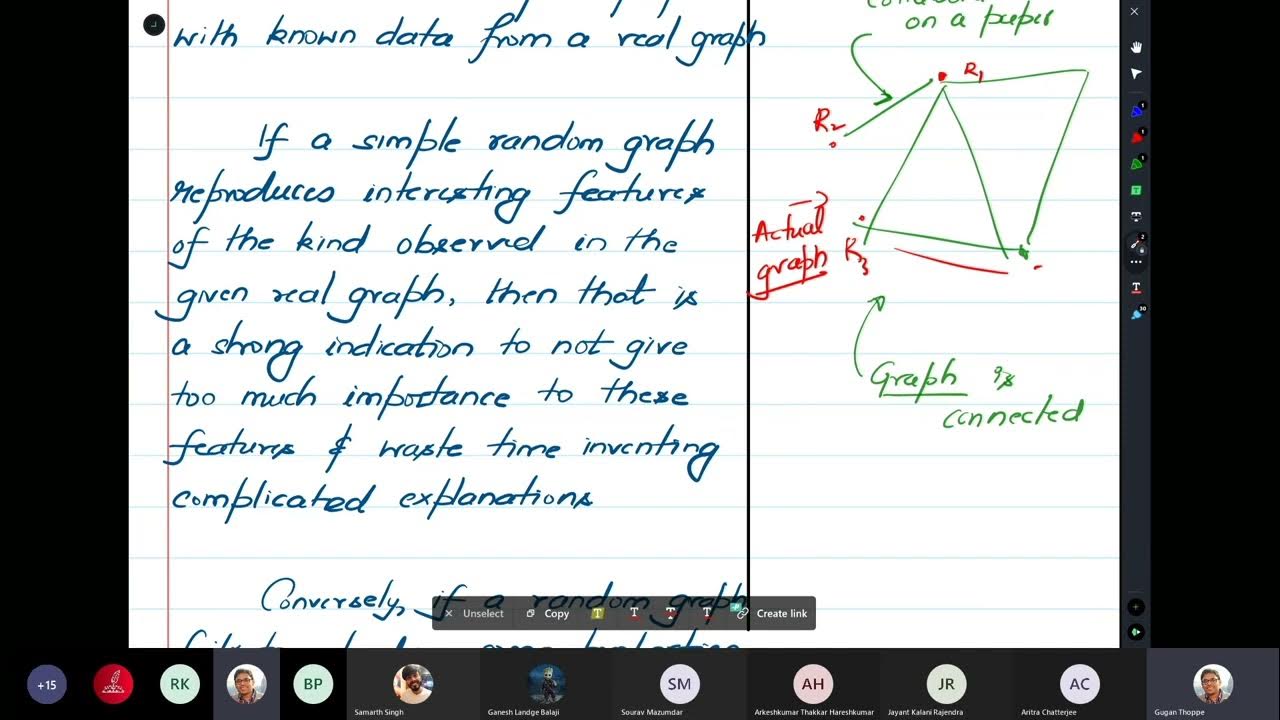 with known data from a real graph
If a simple random graph
reproduces interesting features
of the kind observed in the
given real graph, then that is
a strong indication to not give
too much importance to these
features & waste time inventing
complicated explanations
Conversely, if a random graph
on a paper
R1
R2
Actual
graph
R3
Graph is
connected
Unselect
Copy
T
T
T
T
Create link
+15
RK
BP
Samarth Singh
Ganesh Landge Balaji
SM
Sourav Mazumdar
AH
Arkeshkumar Thakkar Hareshkumar
JR
Jayant Kalani Rajendra
AC
Aritra Chatterjee
Gugan Thoppe